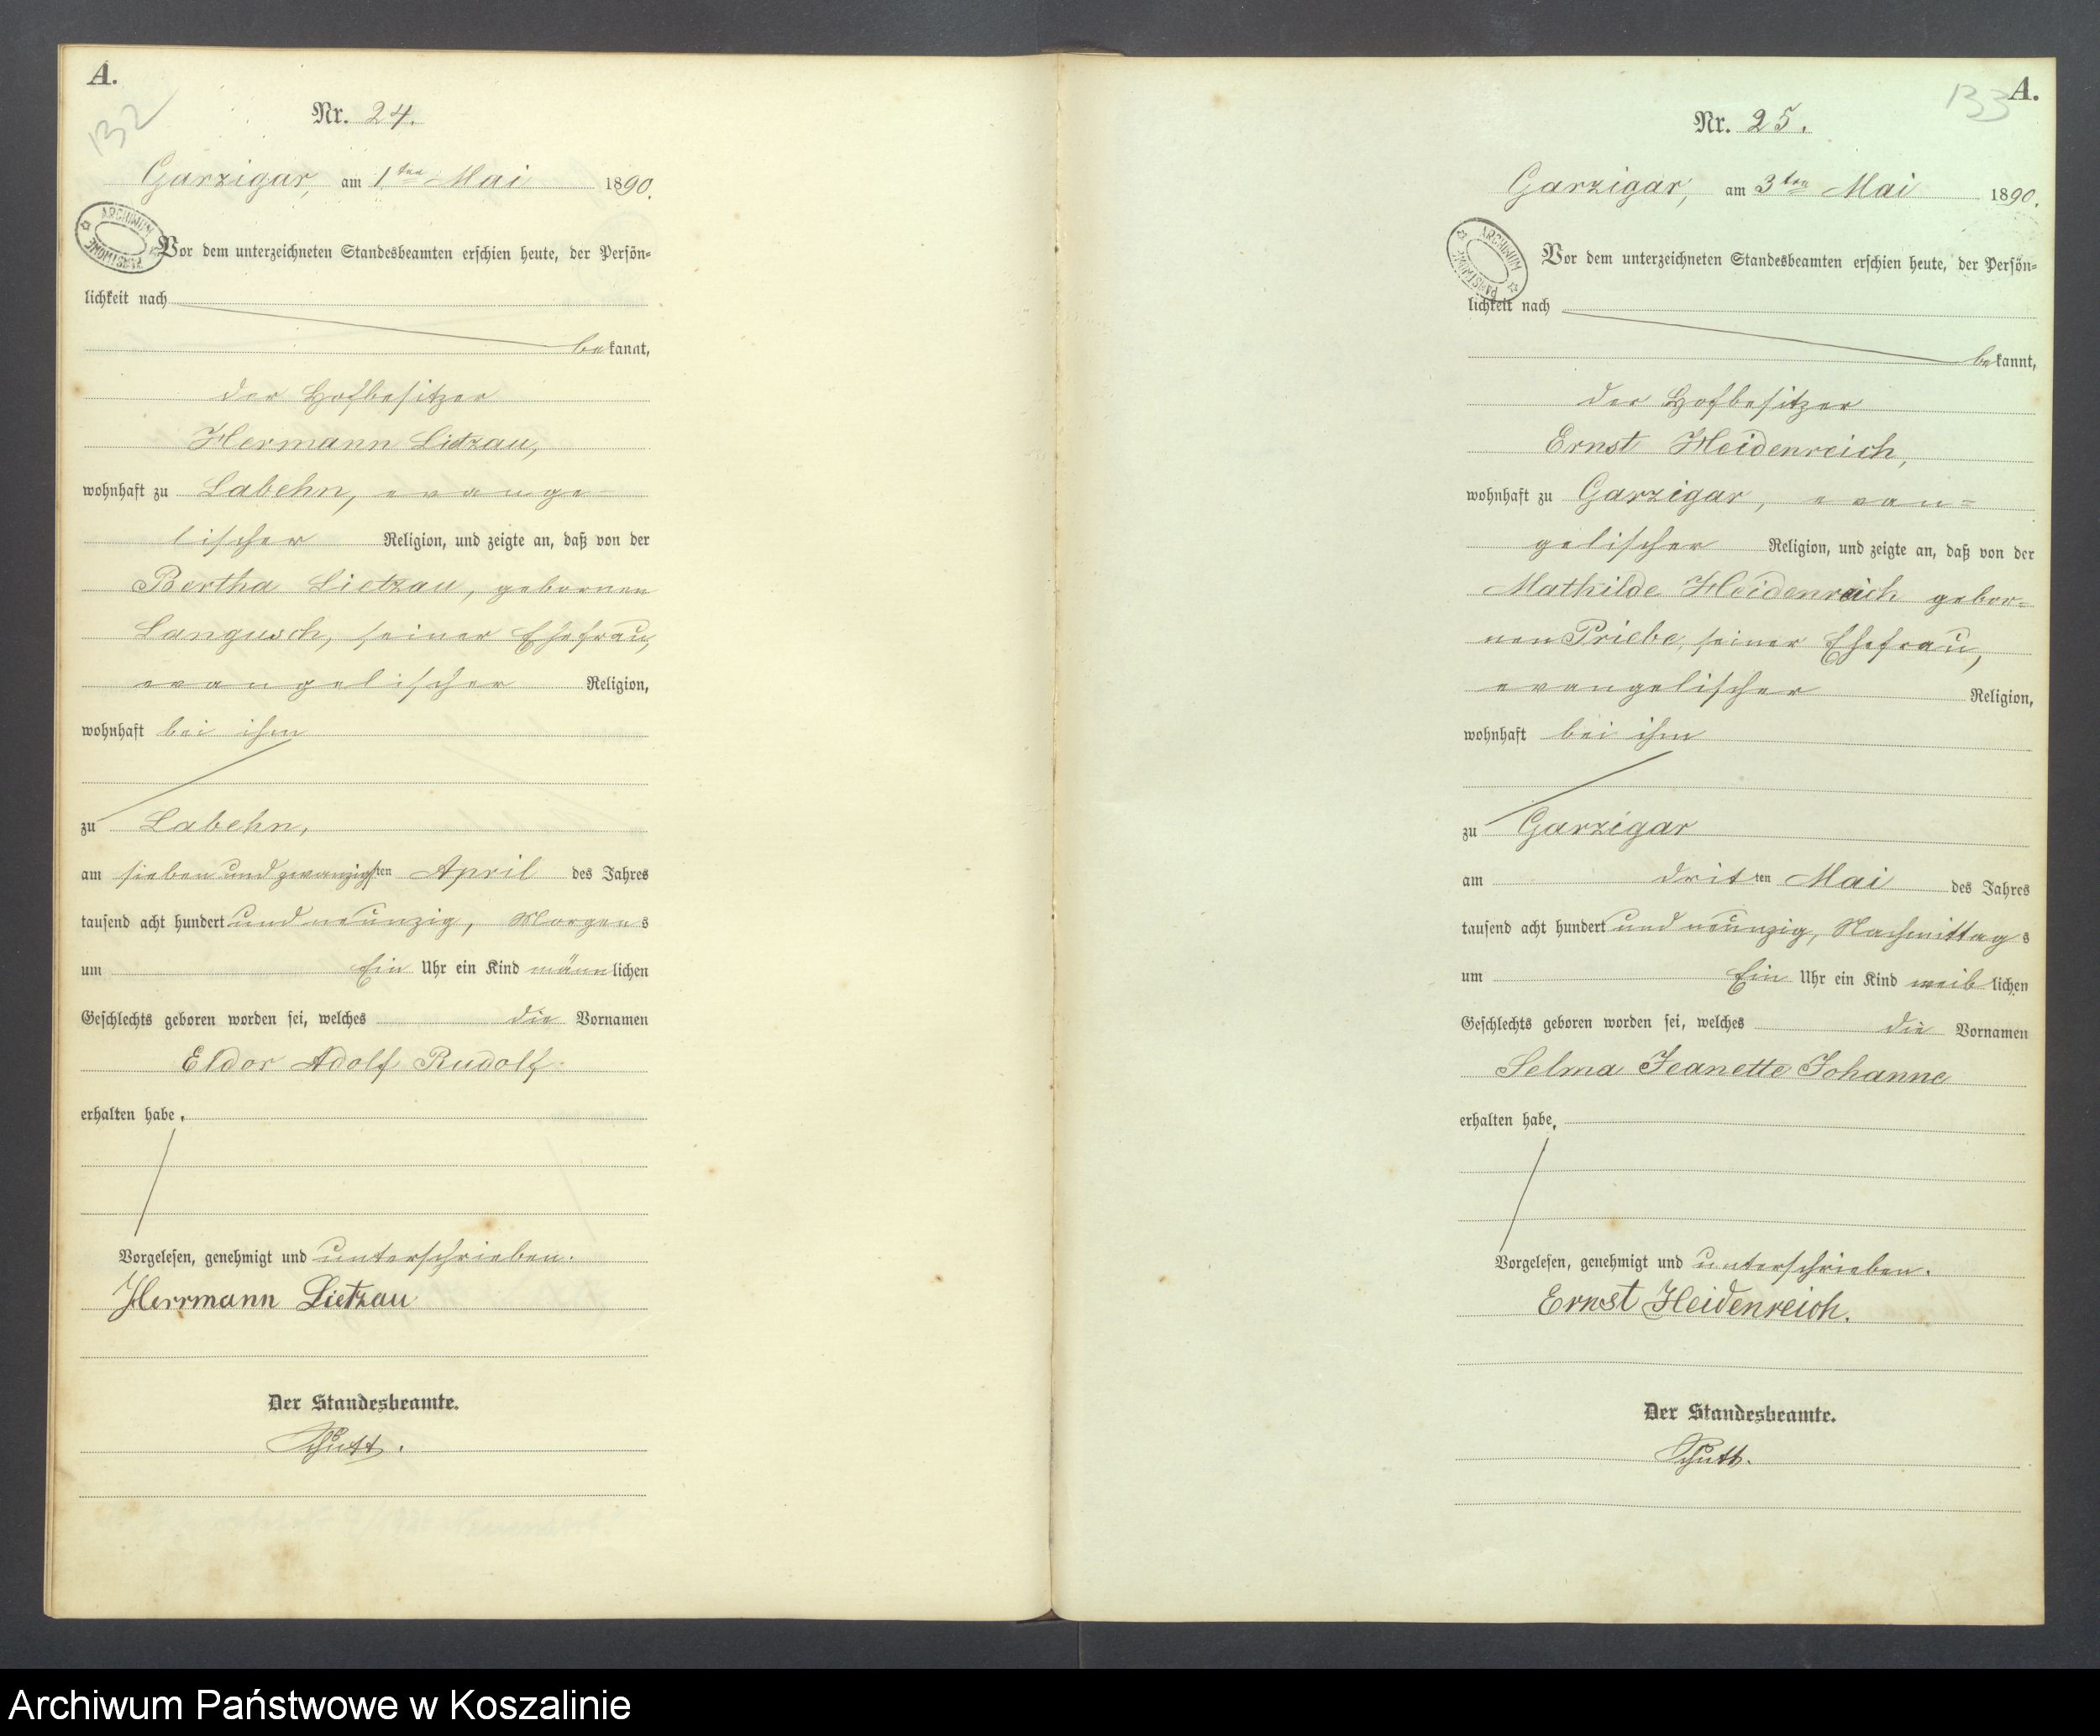 A.
132
Nr. 24.
Garzigar, am 1ten Mai 1890.
ARCHIWUM PAŃSTWOWE
Vor dem unterzeichneten Standesbeamten erschien heute, der Persön-
lichkeit nach
bekannt,
der Hofbesitzer
Hermann Lietzau,
wohnhaft zu Labehn, evange-
lischer Religion, und zeigte an, daß von der
Bertha Lietzau, gebornen
Langusch, seiner Ehefrau,
evangelischer Religion,
wohnhaft bei ihm
zu Labehn,
am sieben und zwanzigsten April des Jahres
tausend acht hundert und neunzig, Morgens
um Ein Uhr ein Kind männlichen
Geschlechts geboren worden sei, welches die Vornamen
Eldor Adolf Rudolf
erhalten habe.
Vorgelesen, genehmigt und unterschrieben.
Herrmann Lietzau
Der Standesbeamte.
A.
133
Nr. 25.
Garzigar, am 3ten Mai 1890.
ARCHIWUM PAŃSTWOWE
Vor dem unterzeichneten Standesbeamten erschien heute, der Persön-
lichkeit nach
bekannt,
der Hofbesitzer
Ernst Heidenreich,
wohnhaft zu Garzigar, evan-
gelischer Religion, und zeigte an, daß von der
Mathilde Heidenreich gebor-
nen Priebe, seiner Ehefrau,
evangelischer Religion,
wohnhaft bei ihm
zu Garzigar
am dritten Mai des Jahres
tausend acht hundert und neunzig, Nachmittags
um Ein Uhr ein Kind weiblichen
Geschlechts geboren worden sei, welches die Vornamen
Selma Jeanette Johanne
erhalten habe.
Vorgelesen, genehmigt und unterschrieben.
Ernst Heidenreich.
Der Standesbeamte.
Archiwum Państwowe w Koszalinie